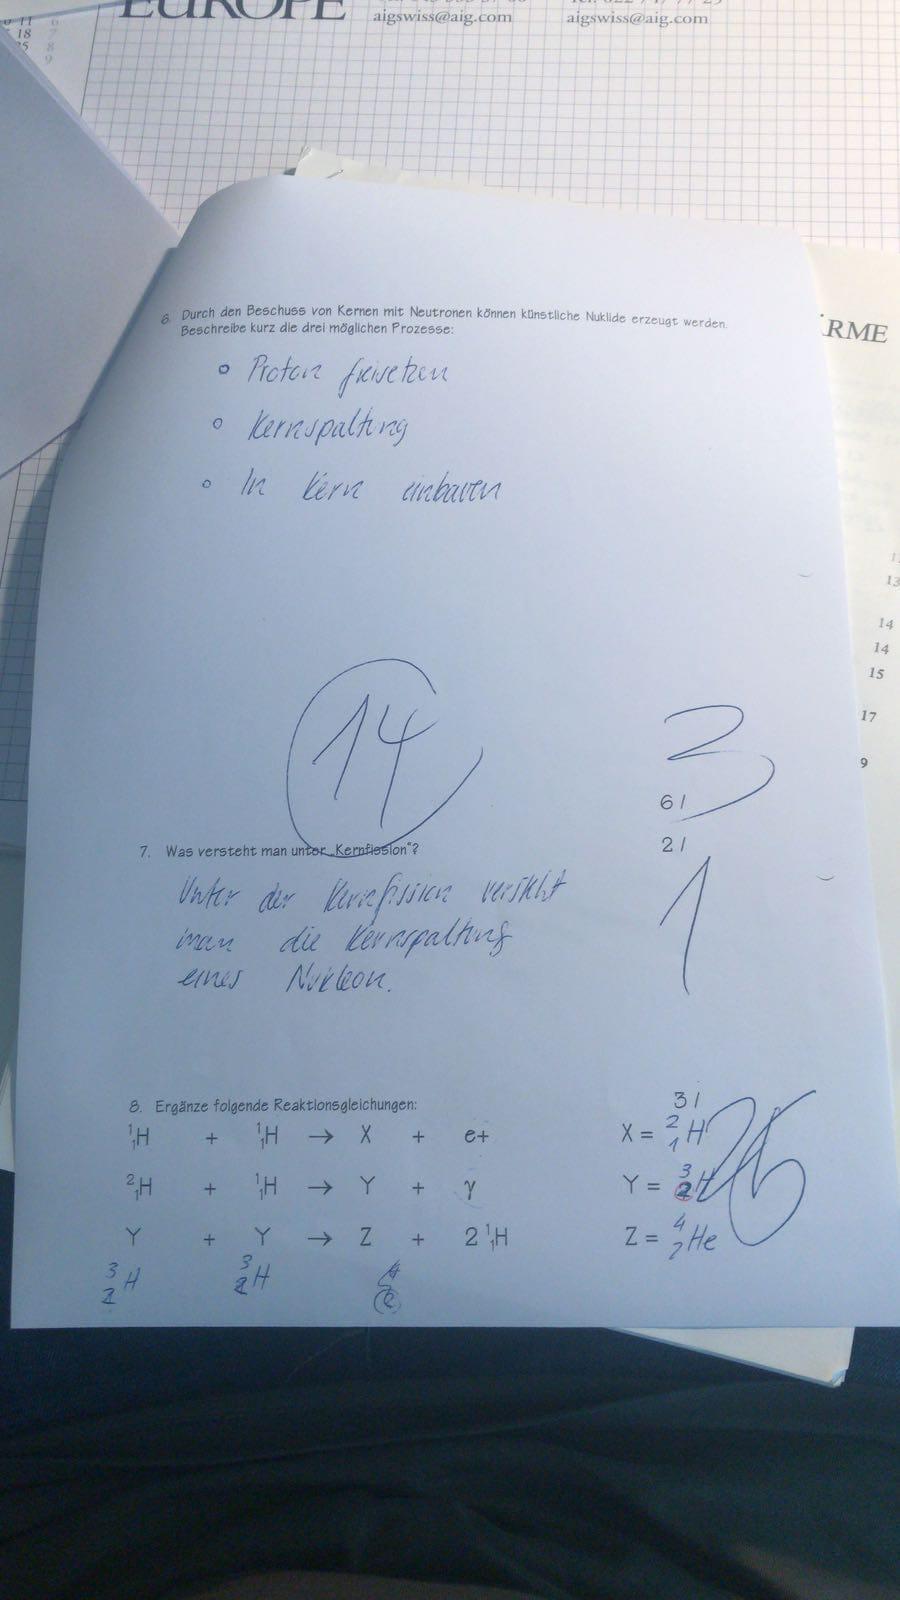 EUROPE
aigswiss@aig.com
aigswiss@aig.com
11
18
25
6
7
8
9
ÄRME
6. Durch den Beschuss von Kernen mit Neutronen können künstliche Nuklide erzeugt werden.
Beschreibe kurz die drei möglichen Prozesse:
Proton freisetzen
Kernspaltung
In Kern einbauen
13
14
14
15
17
9
14
3
6 /
7. Was versteht man unter „Kernfission"?
2 /
Unter der Kernfission versteht
man die Kernspaltung
eines Nukleon.
1
8. Ergänze folgende Reaktionsgleichungen:
3 /
¹₁H + ¹₁H → X + e+ X = ²₁H
²₁H + ¹₁H → Y + γ Y = ³₂H
Y + Y → Z + 2 ¹₁H Z = ⁴₂He
³₂H ³₂H